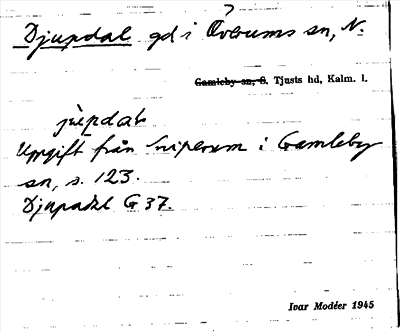 Djupdal gd i Överums sn, N.
Gamleby sn, S. Tjusts hd, Kalm. l.
jùpdɑ̄
Uppgift från Uniperum i Gamleby
sn, s. 123.
Djupadal G 37.
Ivar Modéer 1945